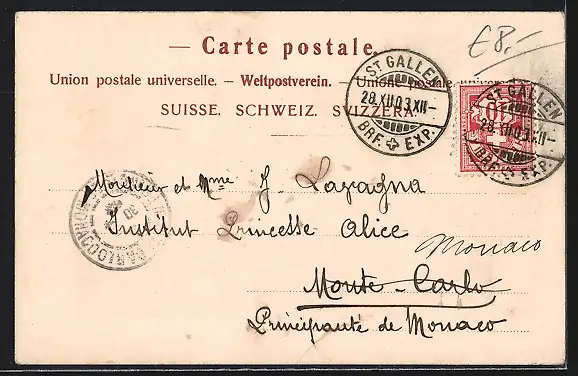 €8.-
— Carte postale.
Union postale universelle. – Weltpostverein. – Unione postale univers
SUISSE. SCHWEIZ. SVIZZERA.
ST GALLEN
28.XII.03.XII–
BRF. EXP.
ST GALLEN
28.XII.03.XII–
BRF. EXP.
10
Monsieur et Mme J. Lavagna
Institut Princesse Alice
Monaco
Monte-Carlo
Principauté de Monaco